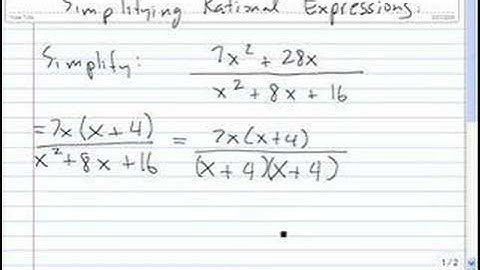 Simplifying Rational Expressions:
Simplify: 7x² + 28x / x² + 8x + 16
= 7x(x+4) / x²+8x+16 = 7x(x+4) / (x+4)(x+4)
1 / 2